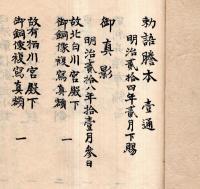 勅語謄本 壹通
明治貳拾四年貳月下賜
御真影
明治貳拾八年拾壹月参日
故北白川宮殿下
御銅像複写真額 一
故有栖川宮殿下
御銅像複写真額 一